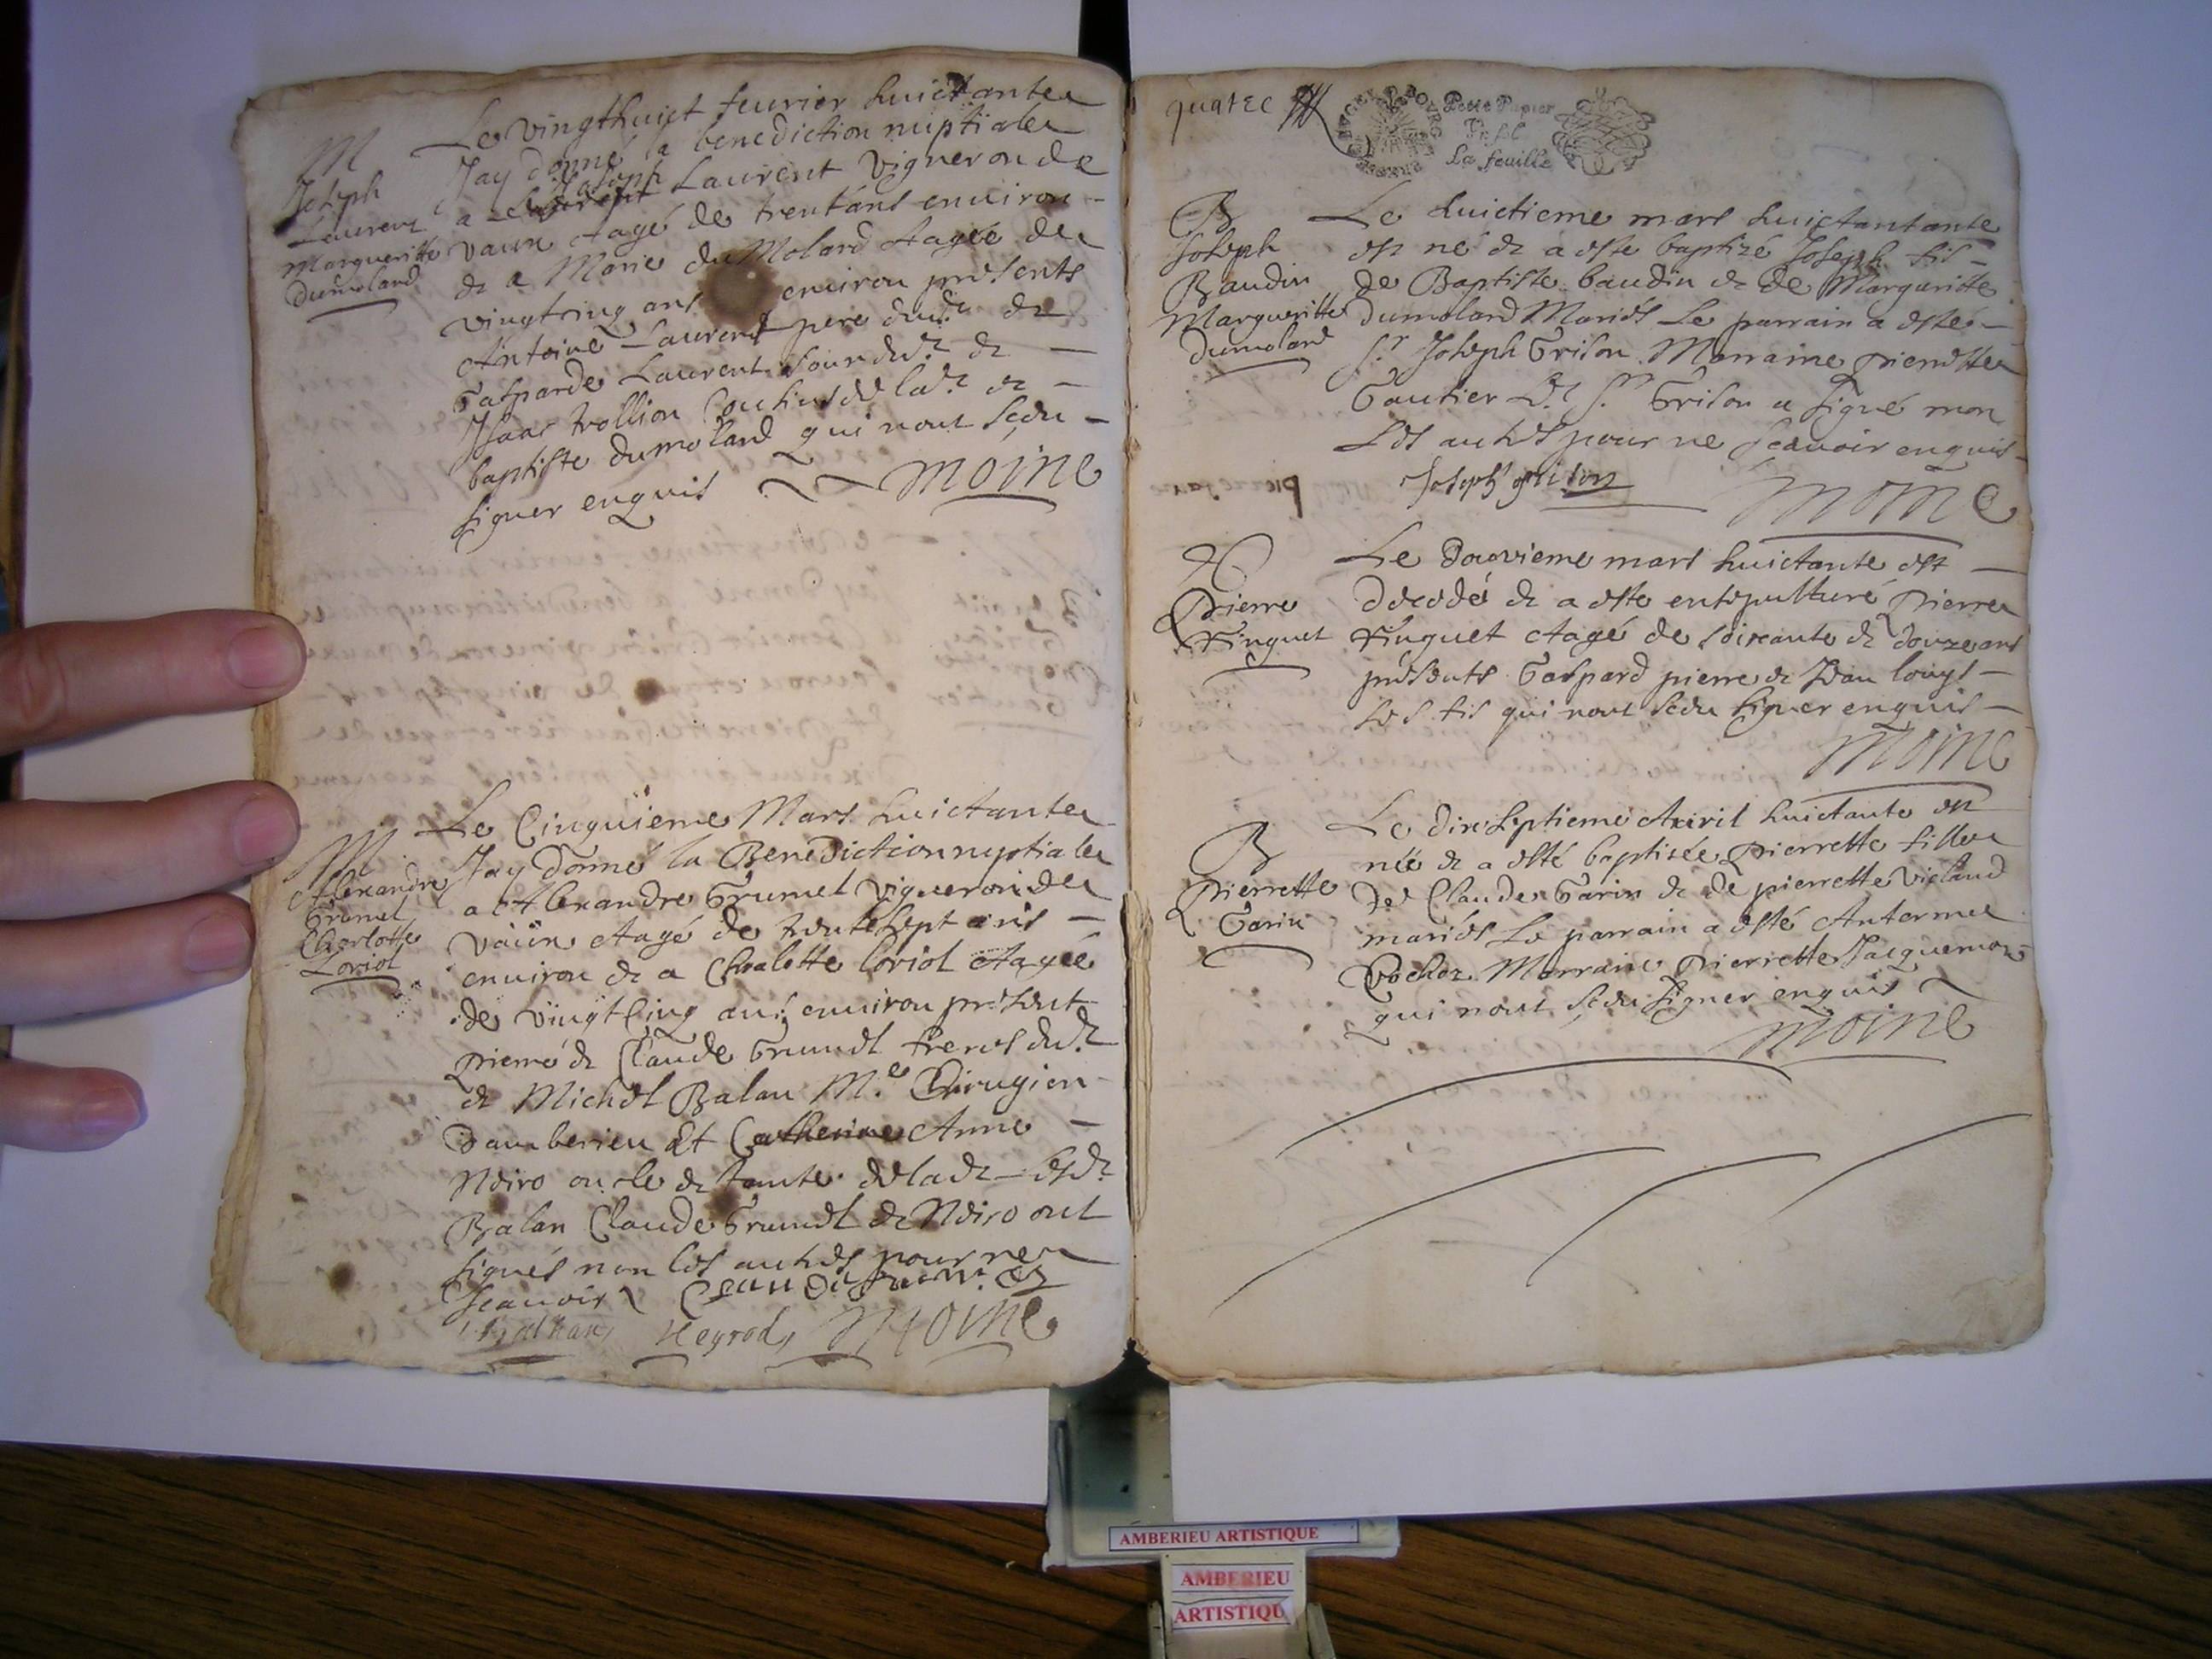 M
Joseph
Laurent
Margueritte
Dumolard
Le vingthuict feurier huictante
Jay donné la benediction nuptiale
a Joseph Laurent vigneron de
vaux aagé de trentans enuiron
& a Marie du Molard aagée de
vingtcinq ans enuiron presents
Antoine Laurent pere dud.t &
Gasparde Laurent soeur dud.t &
Isaac trollion Cousins de lad.t &
baptiste dumolard qui nont sceu
signer enquis moine
M
Alexandre
Grumel
Charlotte
Loriol
Le Cinquieme Mars huictante
Jay donné la Benediction nuptiale
a Alexandre Grumel vigneron de
vaux aagé de trente sept ans
enuiron & a Charlotte loriol aagée
de vingt cinq ans enuiron present
pierre & Claude Grumel freres dud.t
& Michel Balan M.e Chirugien
damberieu Et Catherine Anne
Neiro oncle & tante de lad.t lesd.t
Balan Claude Grumel & Neiro ont
signés non les autres pour ne
scauoir
Neyrod moine
quatre
Petit Papier
La feuille
B
Joseph
Baudin
Margueritte
Dumolard
Le huictieme mars huictantante
est né & a este baptizé Joseph fils
de Baptiste baudin & de Margueritte
Dumolard Mariés Le parrain a esté
S.r Joseph Grison Marraine pierrette
Gautier Led.t S.r Grison a signé mon
Les autres pour ne scauoir enquis
Joseph grison moine
Pierre
Finguet
Le douzieme mars huictante est
decedé & a este ensepulturé pierre
Finguet aagé de soixante & douze ans
présents Gaspard pierre & Jean louys
ses fis qui nont sceu signer enquis
moine
B
pierrette
Garin
Le dix septieme Auril huictante est
née & a esté baptisée pierrette fille
de Claude Garin & de pierrette vielaud
mariés Le parrain a esté Anterme
Cochez Marraine pierrette Jacquemoz
qui nont sceu signer enquis
moine
AMBERIEU ARTISTIQUE
AMBERIEU
ARTISTIQU